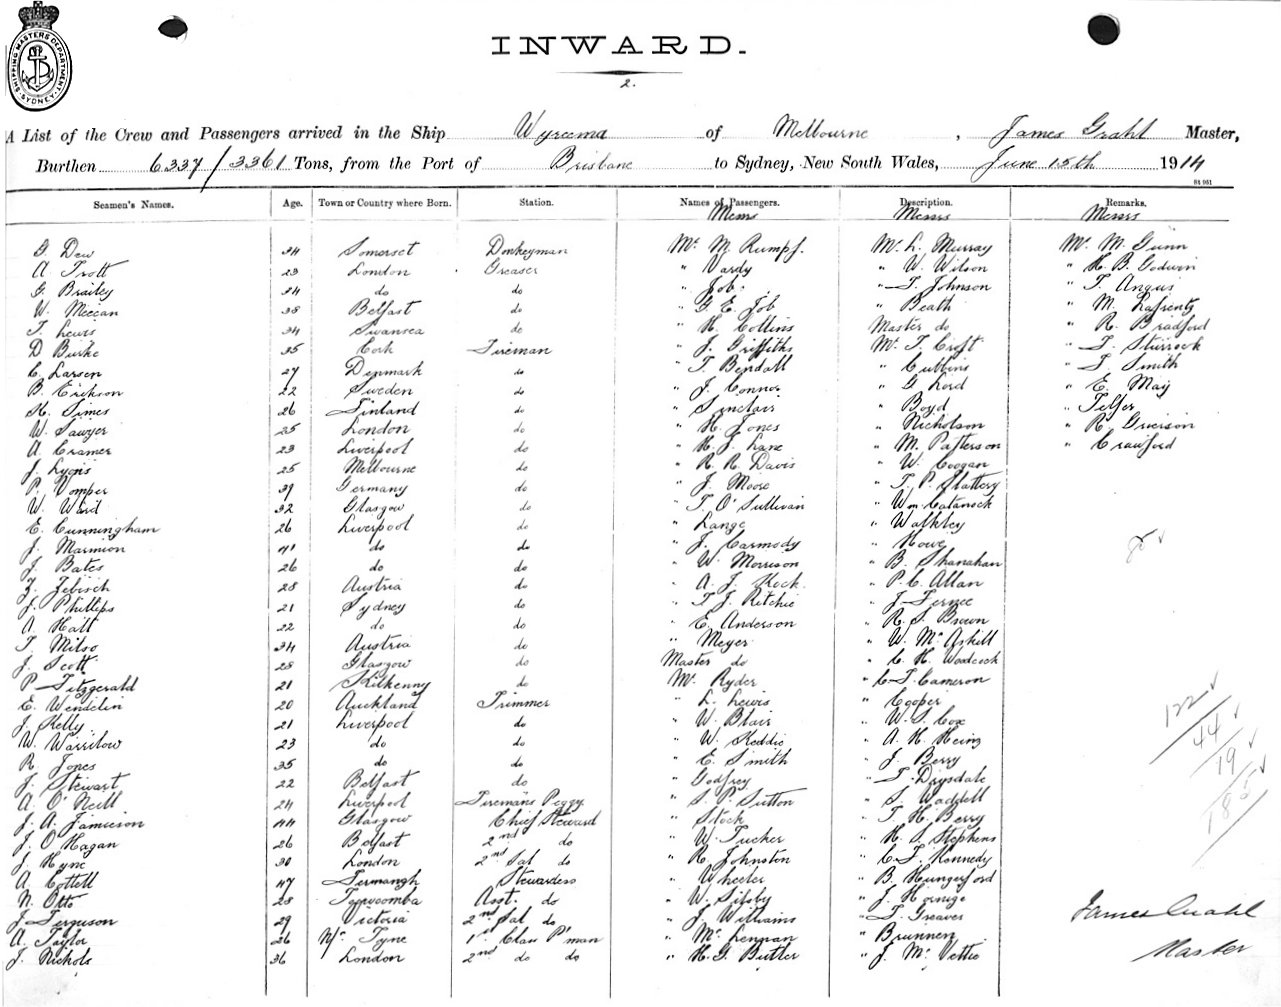 SHIPPING MASTERS DEPARTMENT SYDNEY
INWARD.
2.
A List of the Crew and Passengers arrived in the Ship Wyreema of Melbourne, James Grahl Master,
Burthen 6337/3361 Tons, from the Port of Brisbane to Sydney, New South Wales, June 15th 1914
St 951
Seamen's Names. Age. Town or Country where Born. Station. Names of Passengers. Description. Remarks.
Messrs Messrs Messrs
G. Dew 34 Somerset Donkeyman Mr. M. Rumpf. Mr. L. Murray Mr. M. Gunn
A Trott 23 London Greaser " Vardy " W. Wilson " H. B. Godwin
G. Brailey 34 do do " Job. " T. Johnson " T. Angus
W. Meecan 38 Belfast do " G. E. Job " Beath " M. Lafrentz
T. Lewis 34 Swansea do " H. Collins Master do " R. Bradford
D Burke 35 Cork Fireman " J. Griffiths Mr. T. Croft " T. Sturrock
C. Larsen 27 Denmark do " T. Bendall " Cubbins " T. Smith
B. Erikson 22 Sweden do " J. Connor " G Lord " E. May
H. Simes 26 Finland do " Sinclair " Boyd " Telfer
W. Sawyer 25 London do " H. Jones " Nicholson " R. Grierson
A Cramer 23 Liverpool do " H. J. Lane " M. Patterson " Crawford
J. Lyons 25 Melbourne do " R. R. Davis " W. Coogan
P. Vomper 39 Germany do " J. Moose " T. P. Slattery
W. Ward 32 Glasgow do " T. O'Sullivan " Wm Catanock
E. Cunningham 26 Liverpool do " Lange " Walkley
J. Marmion 41 do do " J. Carmody " Howe
J. Bates 26 do do " W. Morrison " B. Shanahan
Z. Zebisch 28 Austria do " A. J. Keck. " P. C. Allan
J. Phillips 21 Sydney do " T. J. Ritchie " J.
A Hall 22 do do " E. Anderson " R. S. Brown
T. Milso 34 Austria do " Meyer " W. McAskill
J. Scott 28 Glasgow do Master do " C. H. Woodcock
P. Fitzgerald 21 Kilkenny do Mr. Ryder " C. T. Cameron
C. Wendelin 20 Auckland Trimmer " L. Lewis " Cooper
J. Kelly 21 Liverpool do " W. Blair " W. S. Cox
W. Warrilow 23 do do " W. Keddie " A. H. Heinz
R. Jones 35 do do " E. Smith " J. Berry
J. Stewart 22 Belfast do " Godfrey " T. Drysdale
A. O'Neill 24 Liverpool Firemans Peggy " S. P. Sutton " S. Waddell
J. A. Jamieson 44 Glasgow Chief Steward " Stock " T. H. Berry
J. O'Hagan 26 Belfast 2nd do " W. Tucker " H. S. Stephens
J. Hyne 30 London 2nd Sal do " R. Johnston " C. T. Kennedy
A. Cottell 47 Fermangh Stewardess " Wheeler " B. Hungerford
N. Otto 28 Toowoomba Asst. do " W. Silsby " J. Hornige
J. Ferguson 29 Victoria 2nd Sal do " J. Williams " T. Greaves
A. Taylor 26 N/c. Tyne 1st Class P'man " McLennan " Brunnen
J. Nichols 36 London 2nd do do " H. G. Butler " J. McVettie
122
44
19
185
James Grahl
Master